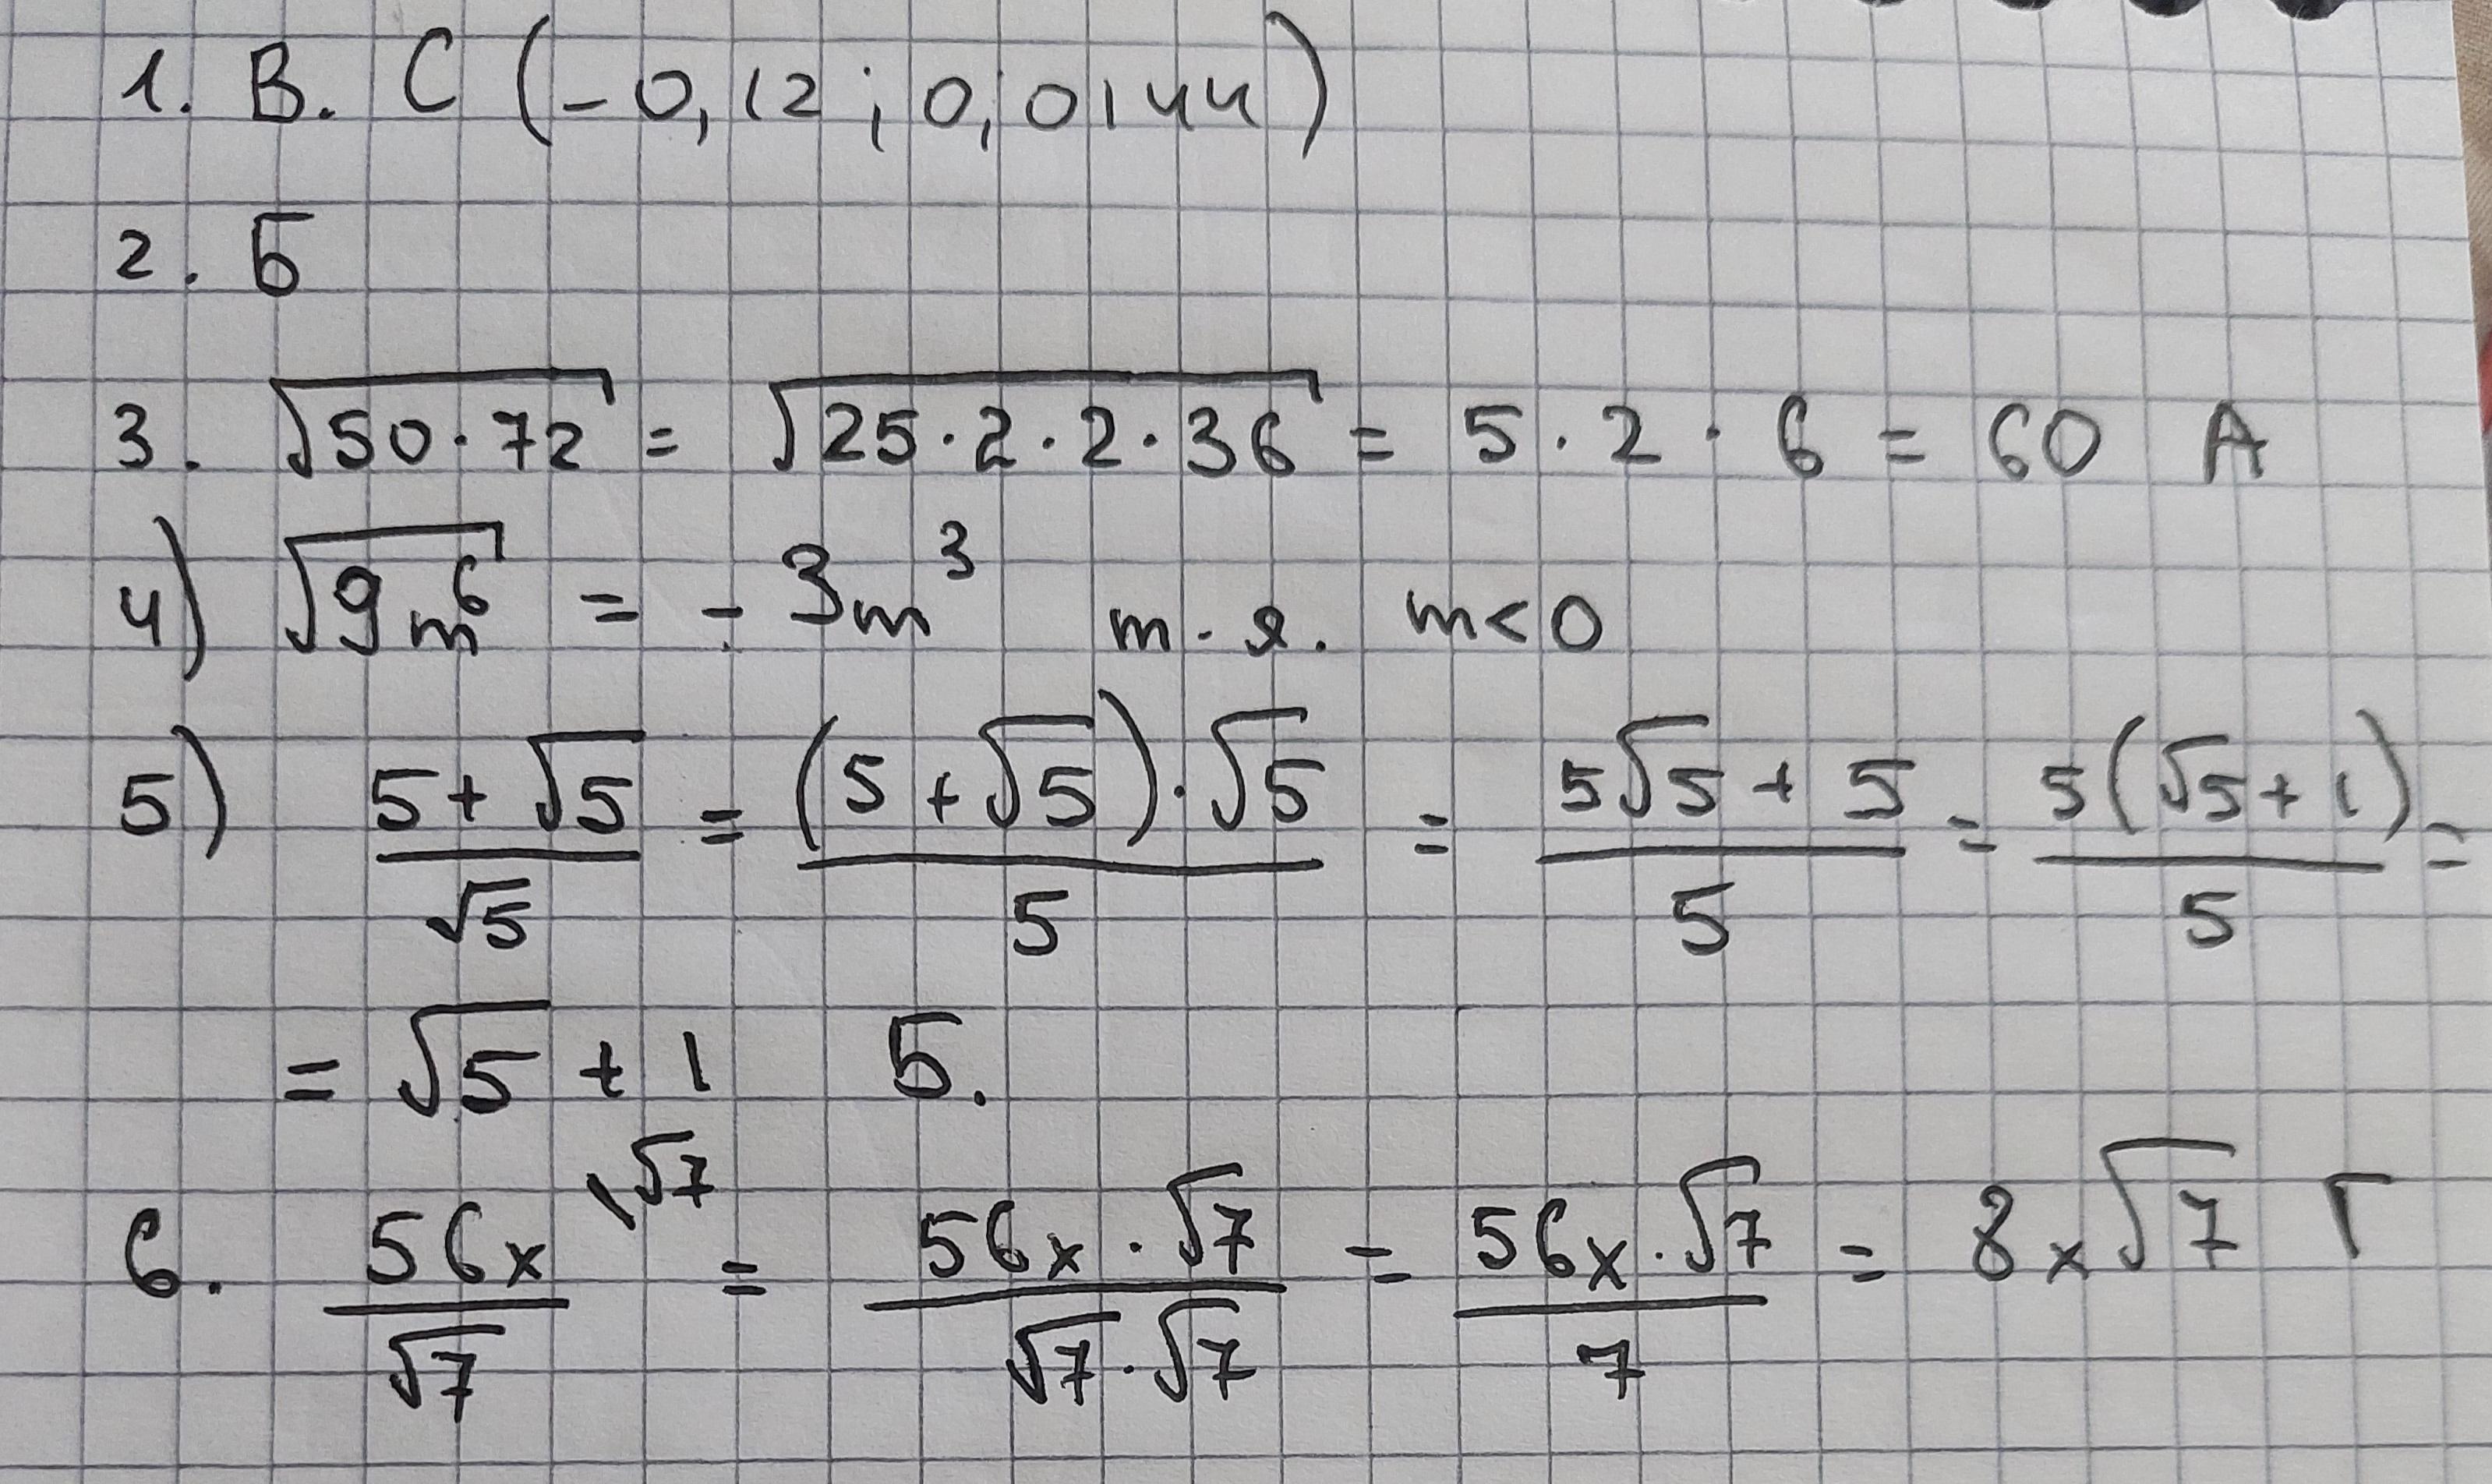 1. В. С (-0,12; 0,0144)
2. Б
3. √(50·72) = √(25·2·2·36) = 5·2·6 = 60 А
4) √(9m⁶) = -3m³ т.я. m<0
5) (5+√5)/√5 = ((5+√5)·√5)/5 = (5√5+5)/5 = 5(√5+1)/5 =
= √5 + 1 Б.
6. 56x/√7 \√7 = (56x·√7)/(√7·√7) = (56x·√7)/7 = 8x√7 Г